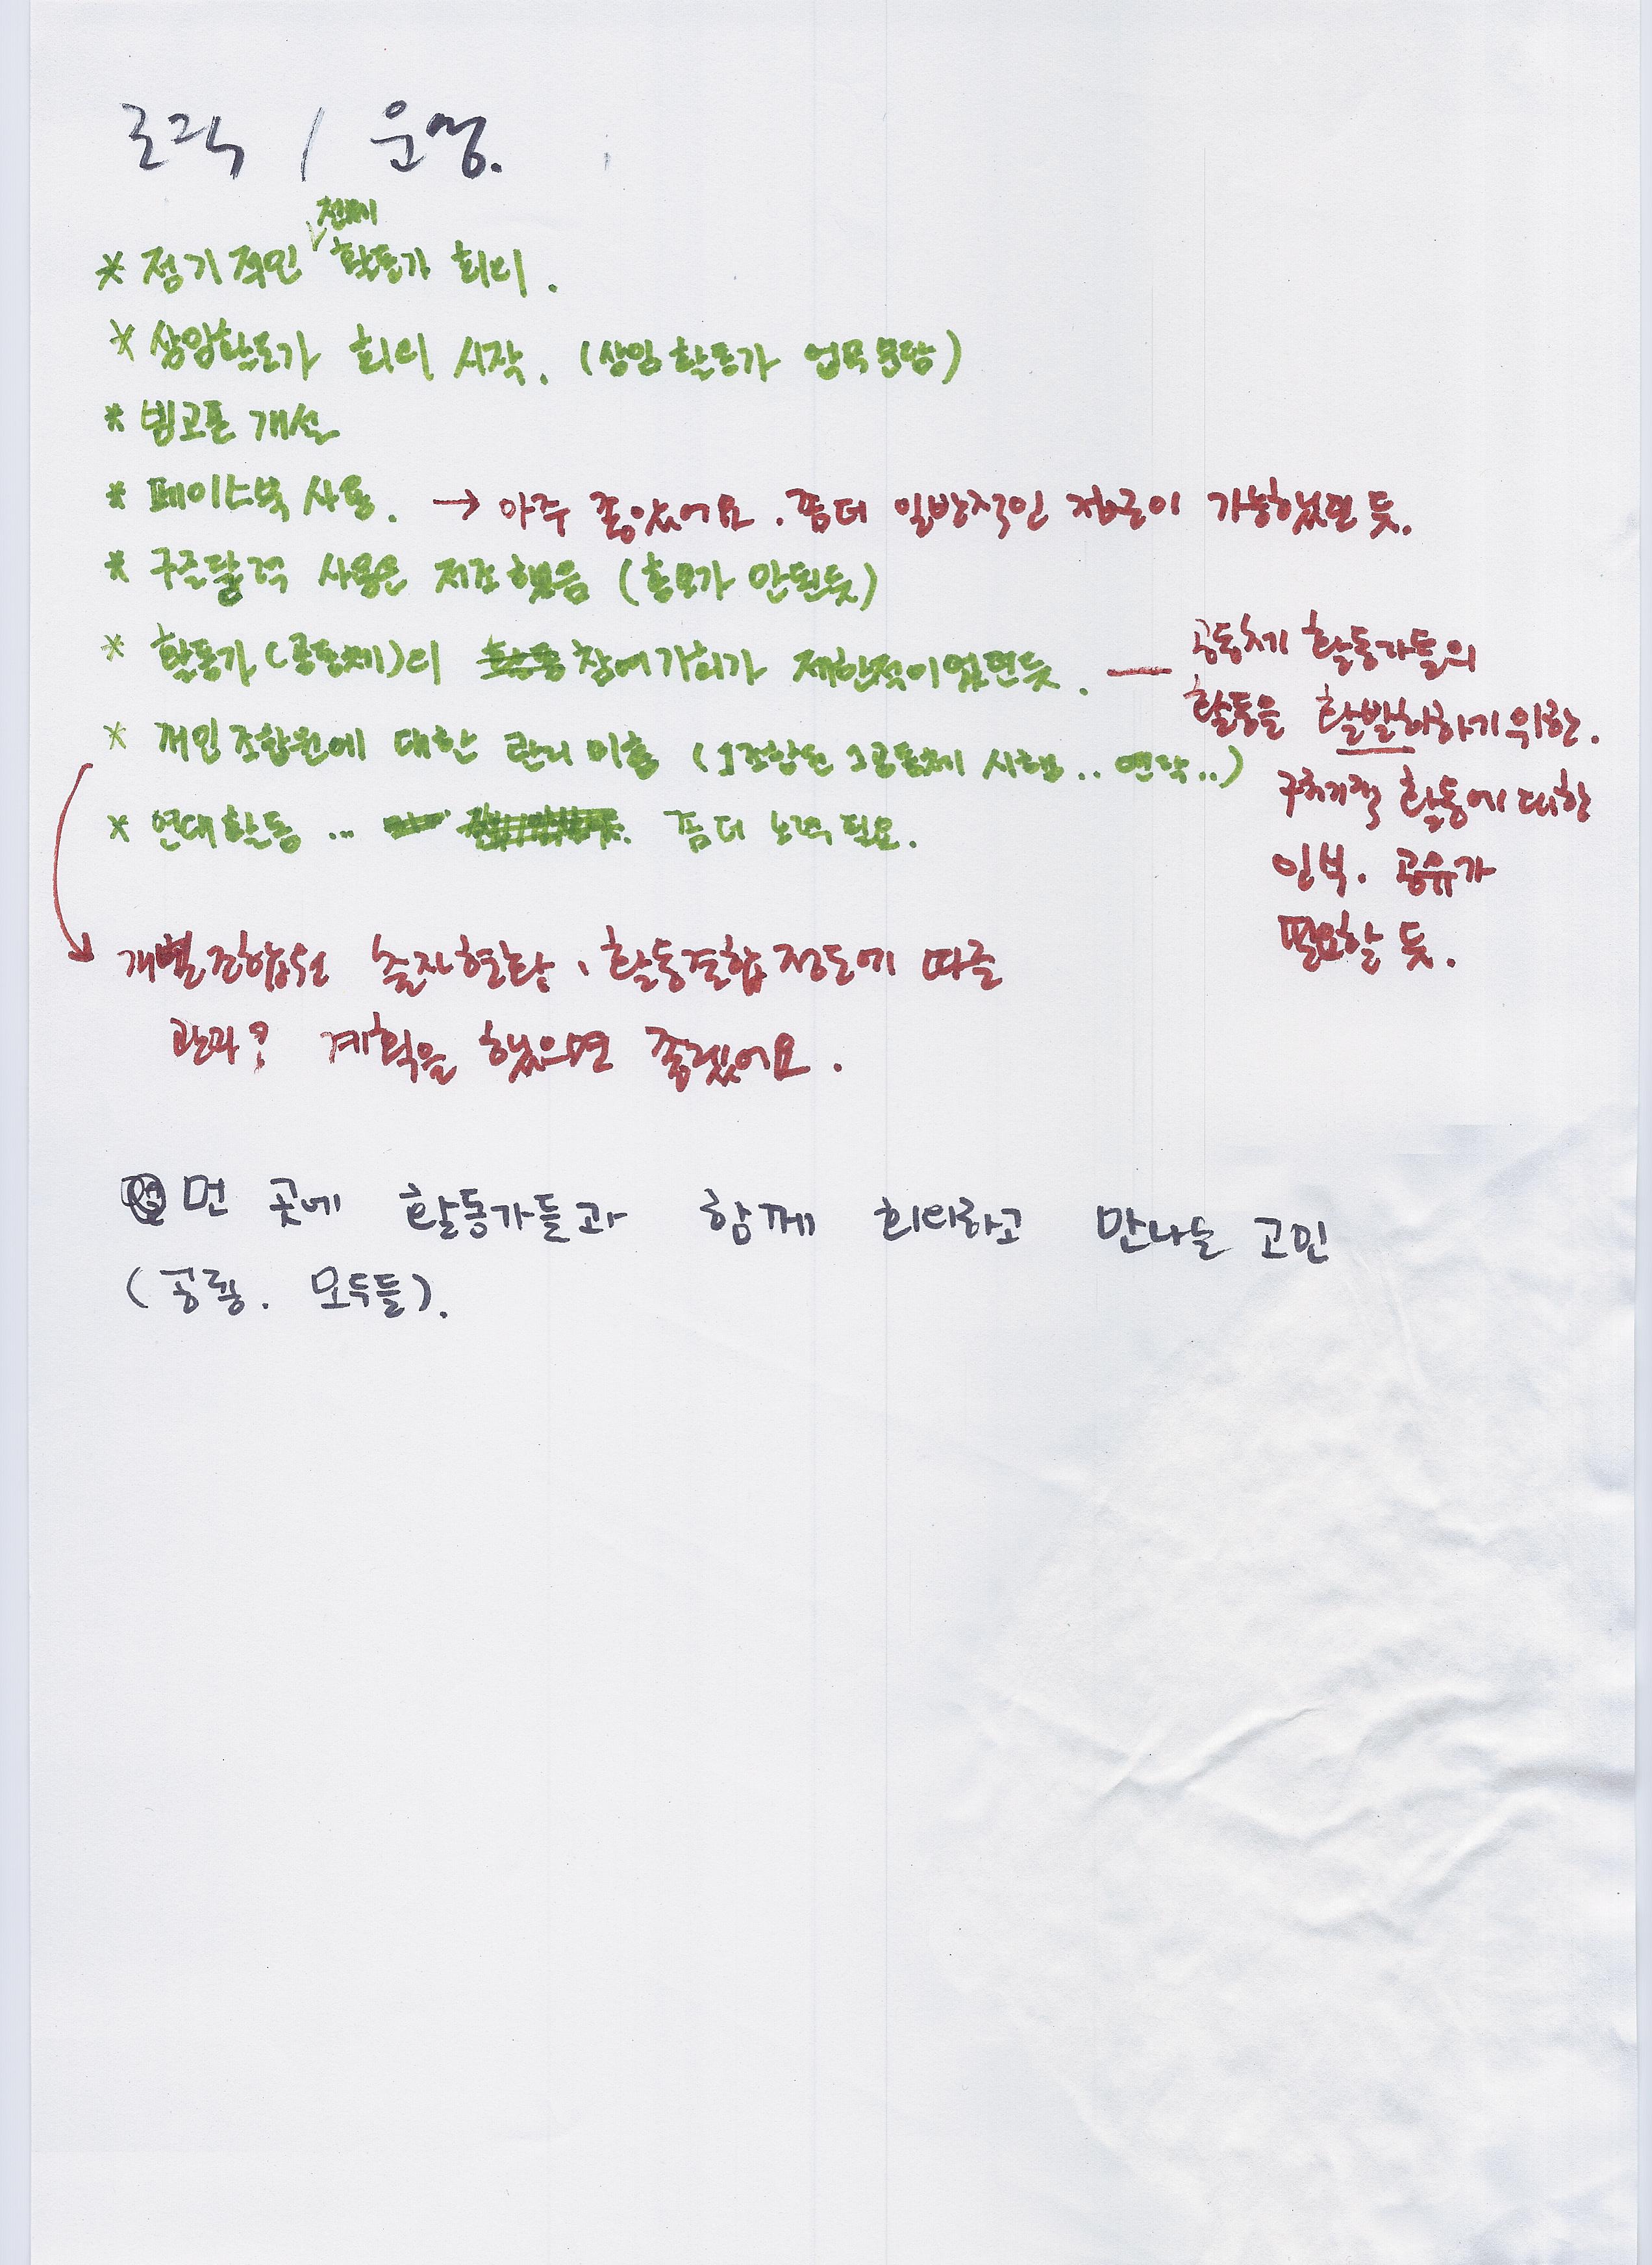 조직 / 운영.
전체
* 정기적인 활동가 회의.
* 상임활동가 회의 시작. (상임활동가 업무분담)
* 빙고폰 개설
* 페이스북 사용. → 아주 좋았어요. 좀더 일반적인 접근이 가능했던 듯.
* 구글달력 사용은 저조했음 (홍보가 안된듯)
* 활동가(공동체)의 참여기회가 제한적이었던듯.
— 공동체 활동가들의
활동을 활발하하기위한.
구체적 활동에 대한
인식. 공유가
필요할 듯.
* 개인조합원에 대한 관리 미흡 (1조합원 1공동체 시행.. 연락..)
* 연대활동 ... 좀더 노력 필요.
개별조합원 출자현황, 활동결합정도에 따른
관과? 계획을 했으면 좋겠어요.
먼 곳에 활동가들과 함께 회의하고 만나는 고민
(공룡. 모두들).